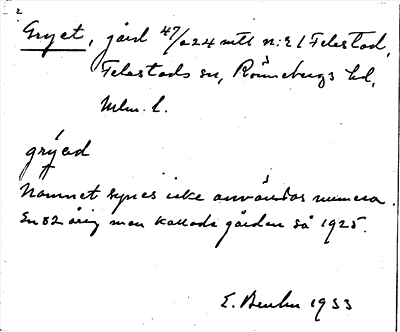 2
Gryet, gård 47/224 mtl n:r 1 Felestad,
Felestads sn, Rönnebergs hd,
Mlm. l.
grýəd
Namnet synes icke användas numera.
En 82 årig man kallade gården så 1925.
E. 1933